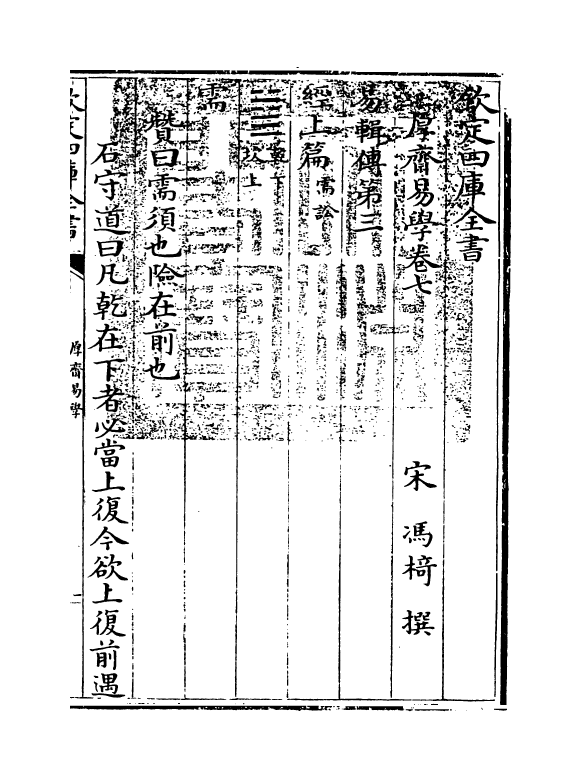 欽定四庫全書
厚齋易學卷七
宋 馮椅 撰
易輯傳第三
經上篇 需訟
䷄ 乾下坎上
需
贊曰需須也險在前也
石守道曰凡乾在下者必當上復今欲上復前遇
欽定四庫全書
厚齋易學
一